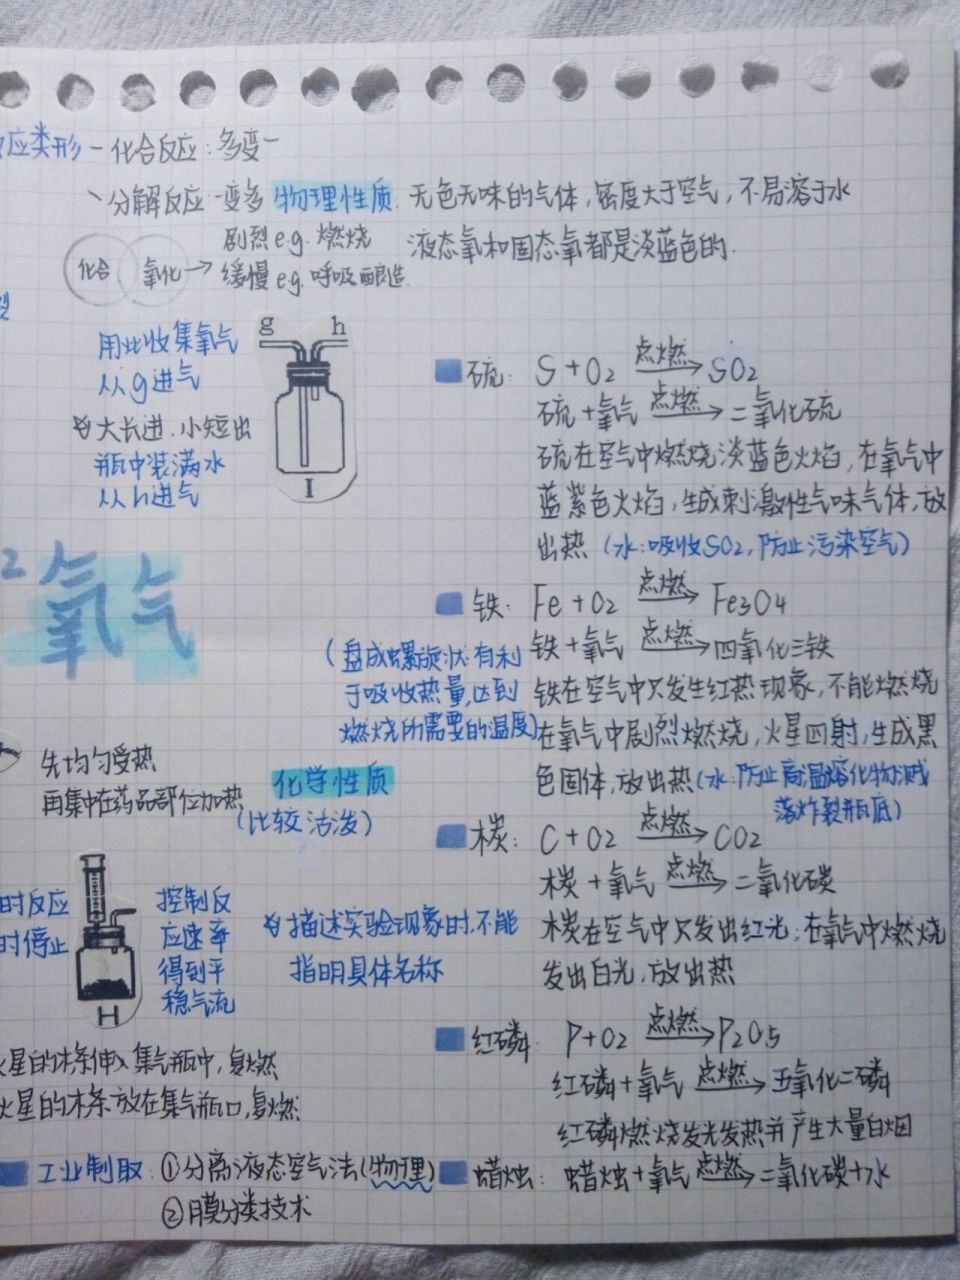 应类形－化合反应：多变一
分解反应 一变多
物理性质：无色无味的气体，密度大于空气，不易溶于水
液态氧和固态氧都是淡蓝色的.
化合
氧化→
剧烈e.g. 燃烧
缓慢e.g. 呼吸 酿造.
用此收集氧气
从g进气
大长进.小短出
瓶中装满水
从h进气
g h
I
O2 氧气
先均匀受热
再集中在药品部位加热
化学性质
(比较活泼)
(盘成螺旋状有利
于吸收热量,达到
燃烧所需要的温度)
时反应
时停止
H
控制反
应速率
得到平
稳气流
描述实验现象时.不能
指明具体名称
火星的木条伸入集气瓶中,复燃
火星的木条放在集气瓶口,复燃
工业制取：①分离液态空气法(物理)
②膜分类技术
硫： S+O2 点燃→ SO2
硫+氧气 点燃→ 二氧化硫
硫在空气中燃烧淡蓝色火焰,在氧气中
蓝紫色火焰,生成刺激性气味气体,放
出热 (水:吸收SO2,防止污染空气)
铁： Fe+O2 点燃→ Fe3O4
铁+氧气 点燃→ 四氧化三铁
铁在空气中只发生红热现象,不能燃烧
在氧气中剧烈燃烧,火星四射,生成黑
色固体,放出热(水:防止高温熔化物溅
落炸裂瓶底)
木炭： C+O2 点燃→ CO2
木炭+氧气 点燃→ 二氧化碳
木炭在空气中只发出红光;在氧气中燃烧
发出白光,放出热
红磷： P+O2 点燃→ P2O5
红磷+氧气 点燃→ 五氧化二磷
红磷燃烧发光发热并产生大量白烟
蜡烛： 蜡烛+氧气 点燃→ 二氧化碳+水